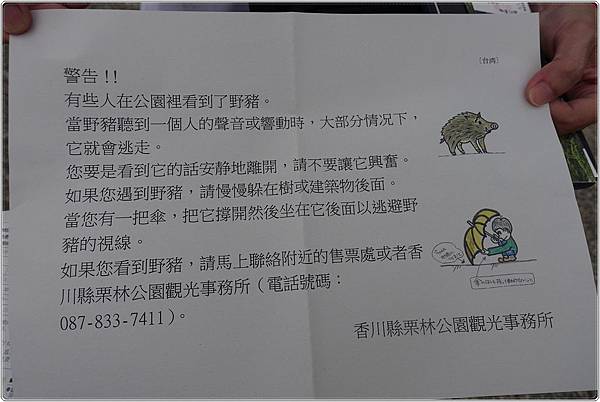 〔台湾〕
警告!!
有些人在公園裡看到了野豬。
當野豬聽到一個人的聲音或響動時，大部分情况下，
它就會逃走。
您要是看到它的話安静地離開，請不要讓它興奮。
如果您遇到野豬，請慢慢躲在樹或建築物後面。
當您有一把傘，把它撐開然後坐在它後面以逃避野
豬的視線。
如果您看到野豬，請馬上聯絡附近的售票處或者香
川縣栗林公園觀光事務所（電話號碼：
087-833-7411）。
香川縣栗林公園觀光事務所